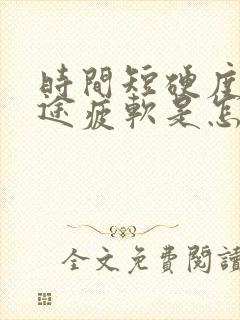 時間短硬度
途疲軟是怎
全文免費閱讀